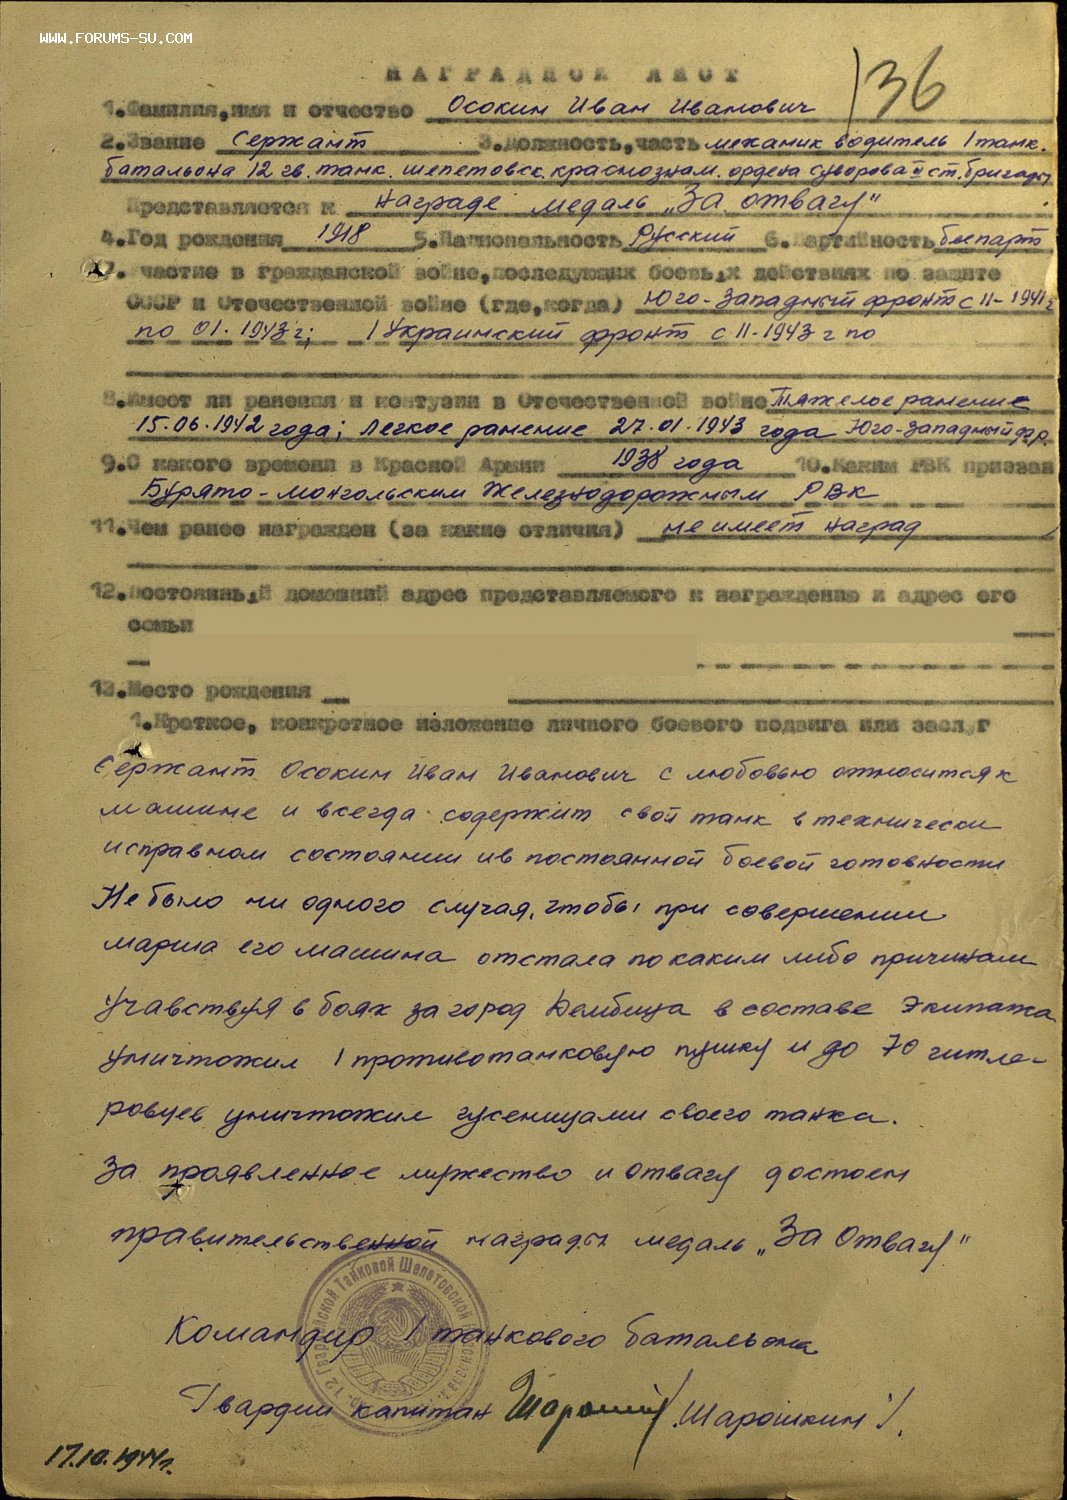 WWW.FORUMS-SU.COM
136
НАГРАДНОЙ ЛИСТ
1.Фамилия,имя и отчество Осокин Иван Иванович
2.Звание Сержант 3.Должность,часть механик водитель 1 танк.
батальона 12 гв. танк. шепетовск. краснознам. ордена суворова II ст. бригады
Представляется к награде медаль „За отвагу"
4.Год рождения 1918 5.Национальность Русский 6.Партийность беспарт
7.Участие в гражданской войне,последующих боевых действиях по защите
СССР и Отечественной войне (где,когда) Юго-Западный фронт с 11-1941г
по 01.1943г; 1 Украинский фронт с 11-1943 г по
8.Имеет ли ранения и контузии в Отечественной войне Тяжелое ранение
15.06.1942 года; Легкое ранение 27.01.1943 года Юго-Западный фр.
9.С какого времени в Красной Армии 1938 года 10.Каким РВК призван
Бурято-монгольским Железнодорожным РВК
11.Чем ранее награжден (за какие отличия) не имеет наград
12.Постоянный домашний адрес представляемого к награждению и адрес его
семьи
13.Место рождения
1.Краткое, конкретное изложение личного боевого подвига или заслуг
Сержант Осокин Иван Иванович с любовью относится к
машине и всегда содержит свой танк в технически
исправном состоянии и в постоянной боевой готовности
Не было ни одного случая, чтобы при совершении
марша его машина отстала по каким либо причинам
Учавствуя в боях за город Дембица в составе Экипажа
уничтожил 1 противотанковую пушку и до 70 гитле-
ровцев уничтожил гусеницами своего танка.
За проявленное мужество и отвагу достоен
правительственной награды медаль „За Отвагу"
Командир 1 танкового батальона
Гвардии капитан /Шарошкин/.
17.10.1944г.